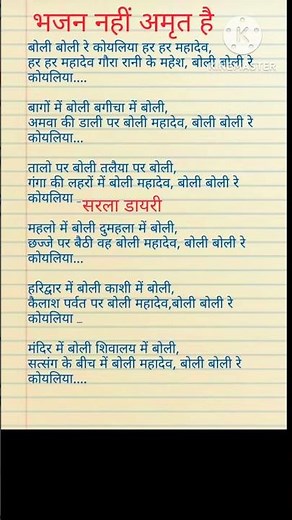 भजन नहीं अमृत है
बोली बोली रे कोयलिया हर हर महादेव,
हर हर महादेव गौरा रानी के महेश, बोली बोली रे
कोयलिया....
KINEMASTER
बागों में बोली बगीचा में बोली,
अमवा की डाली पर बोली महादेव, बोली बोली रे
कोयलिया...
तालो पर बोली तलैया पर बोली,
गंगा की लहरों में बोली महादेव, बोली बोली रे
कोयलिया _
सरला डायरी
महलो में बोली दुमहला में बोली,
छज्जे पर बैठी वह बोली महादेव, बोली बोली रे
कोयलिया...
हरिद्वार में बोली काशी में बोली,
कैलाश पर्वत पर बोली महादेव,बोली बोली रे
कोयलिया _
मंदिर में बोली शिवालय में बोली,
सत्संग के बीच में बोली महादेव, बोली बोली रे
कोयलिया....